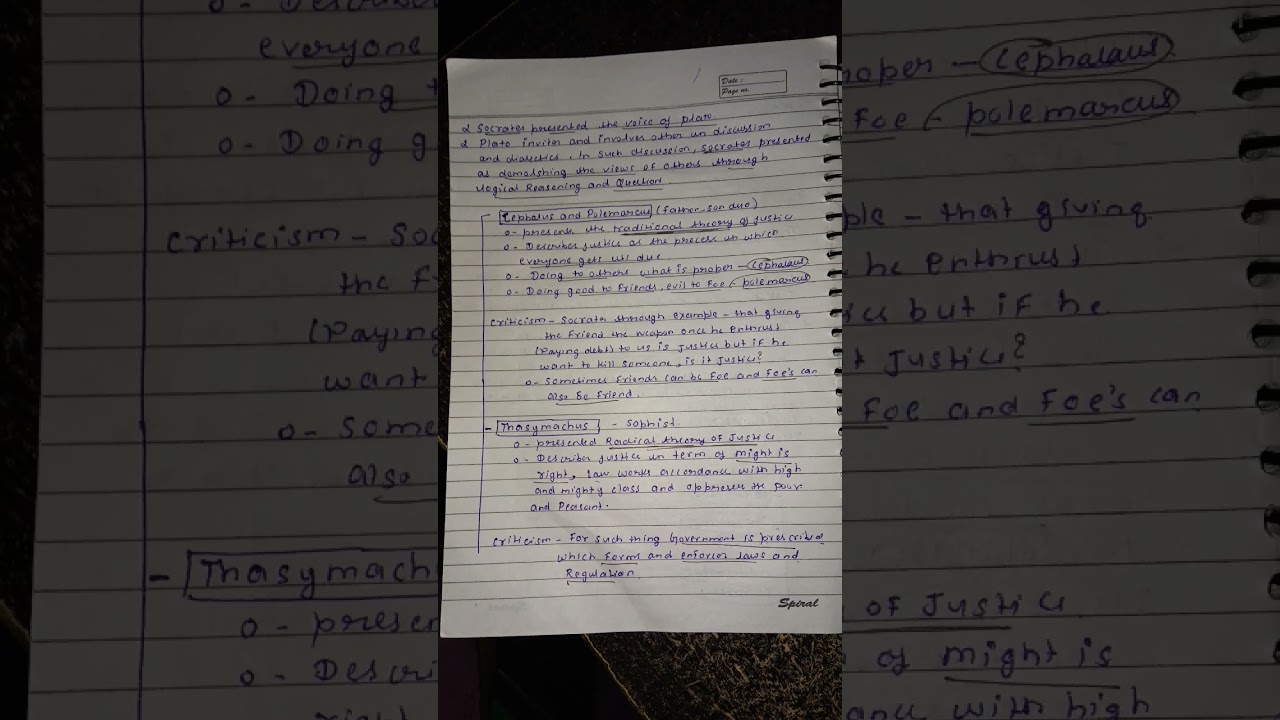 Date :
Page no.
α Socrates presented the voice of plato.
α Plato invites and involves other in discussion
and dialectics. In such discussion, Socrates presented
as demolshing the views of others through
logical Reasoning and Question.
Cephalus and Polemarcus (father-son duo)
o- presents the traditional theory of Justice
o- Describes justice as the process in which
everyone gets its due
o- Doing to others what is proper - Cephalaus
o- Doing good to Friends, evil to Foe - polemarcus
Criticism - Socrates through example - that giving
the Friend the weapon once he enthrust
(Paying debt) to us is Justice but if he
want to kill someone, is it Justice?
o- Sometimes Friends can be Foe and Foe's can
also be Friend.
- Thasymachus - Sophist
o- presented Radical theory of Justice
o- Describes justice in term of might is
right, law works accordance with high
and mighty class and oppresses the poor
and Peasant.
Criticism - For such thing Government is prescribed
which Forms and enforces laws and
Regulation
Spiral